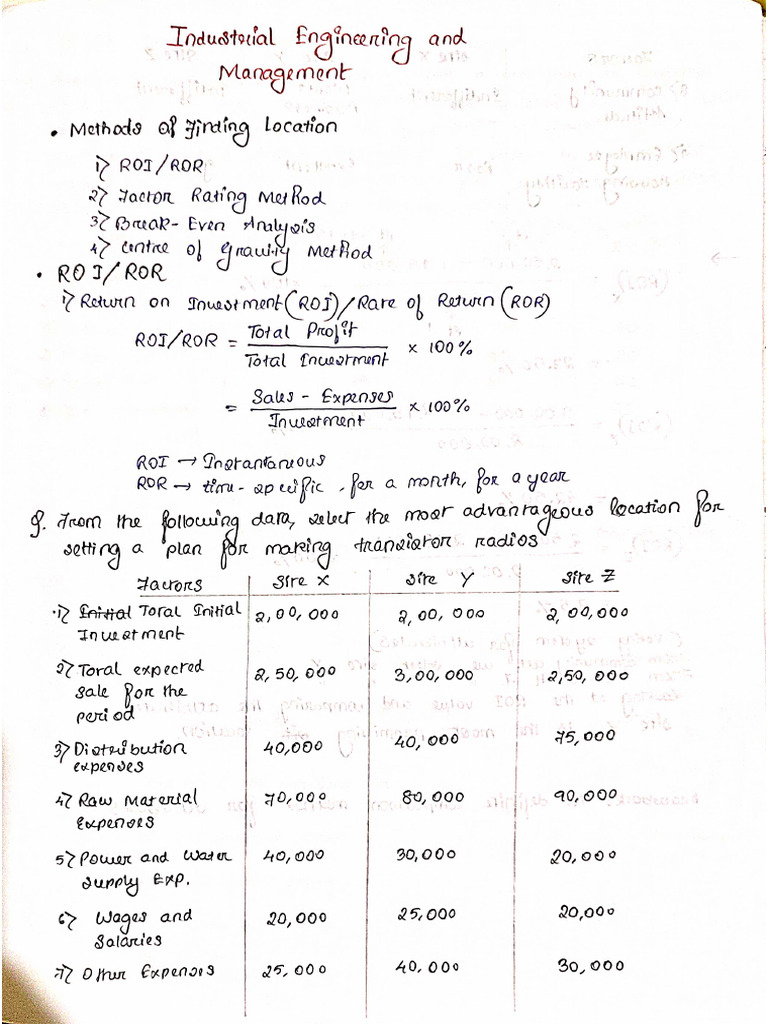 Industrial Engineering and
Management
• Methods of Finding Location
1) ROI/ROR
2) Factor Rating Method
3) Break-Even Analysis
4) Centre of Gravity Method
• ROI/ROR
1) Return on Investment (ROI)/Rate of Return (ROR)
ROI/ROR = Total Profit / Total Investment × 100%
= Sales - Expenses / Investment × 100%
ROI → Instantaneous
ROR → time-specific, for a month, for a year
Q. From the following data, select the most advantageous location for
setting a plan for making transistor radios
Factors Site X Site Y Site Z
1) Initial Total Initial 2,00,000 2,00,000 2,00,000
Investment
2) Total expected 2,50,000 3,00,000 2,50,000
sale for the
period
3) Distribution 40,000 40,000 75,000
expenses
4) Raw Material 70,000 80,000 90,000
Expenses
5) Power and Water 40,000 30,000 20,000
Supply Exp.
6) Wages and 20,000 25,000 20,000
Salaries
7) Other Expenses 25,000 40,000 30,000